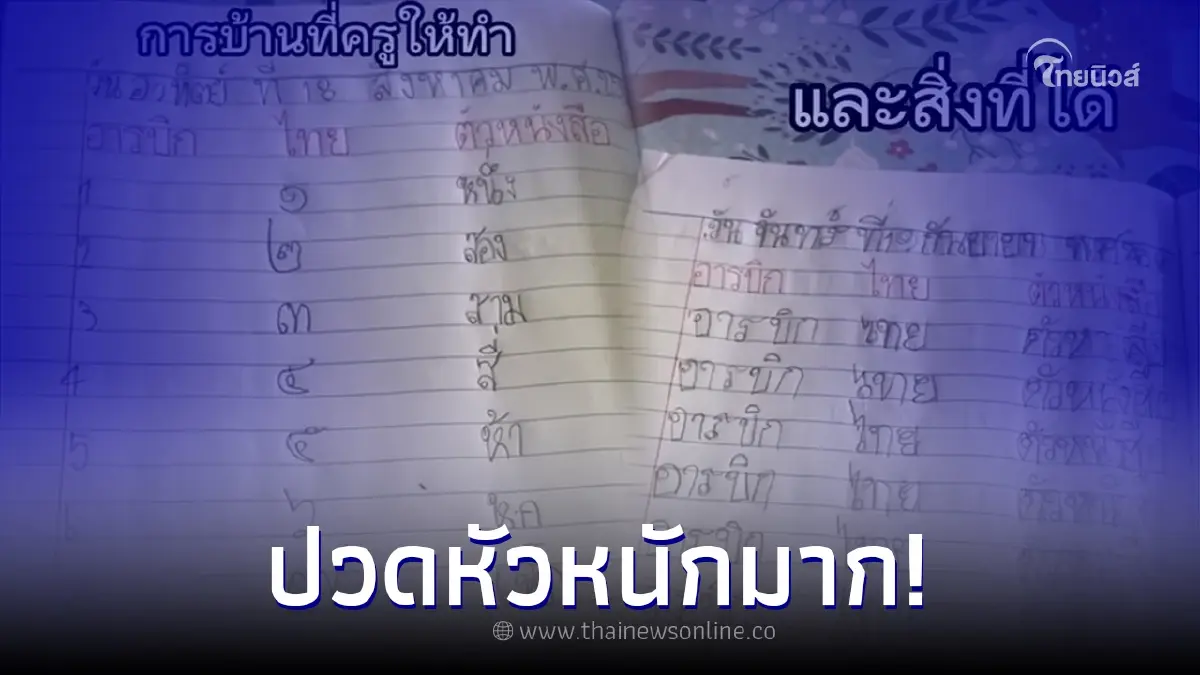 การบ้านที่ครูให้ทำ
ไทยนิวส์
และสิ่งที่ได้
วันอาทิตย์ ที่ 18 สิงหาคม พ.ศ.
อารบิก ไทย ตัวหนังสือ
1 ๑ หนึ่ง
2 ๒ สอง
3 ๓ สาม
4 ๔ สี่
5 ๕ ห้า
๖ หก
วัน จันทร์ ที่
อารบิก ไทย ตัวหนังสือ
อารบิก ไทย
อารบิก ไทย ตัวหนังสือ
อารบิก ไทย
อารบิก ไทย
อารบิก ไทย
ปวดหัวหนักมาก!
www.thainewsonline.co